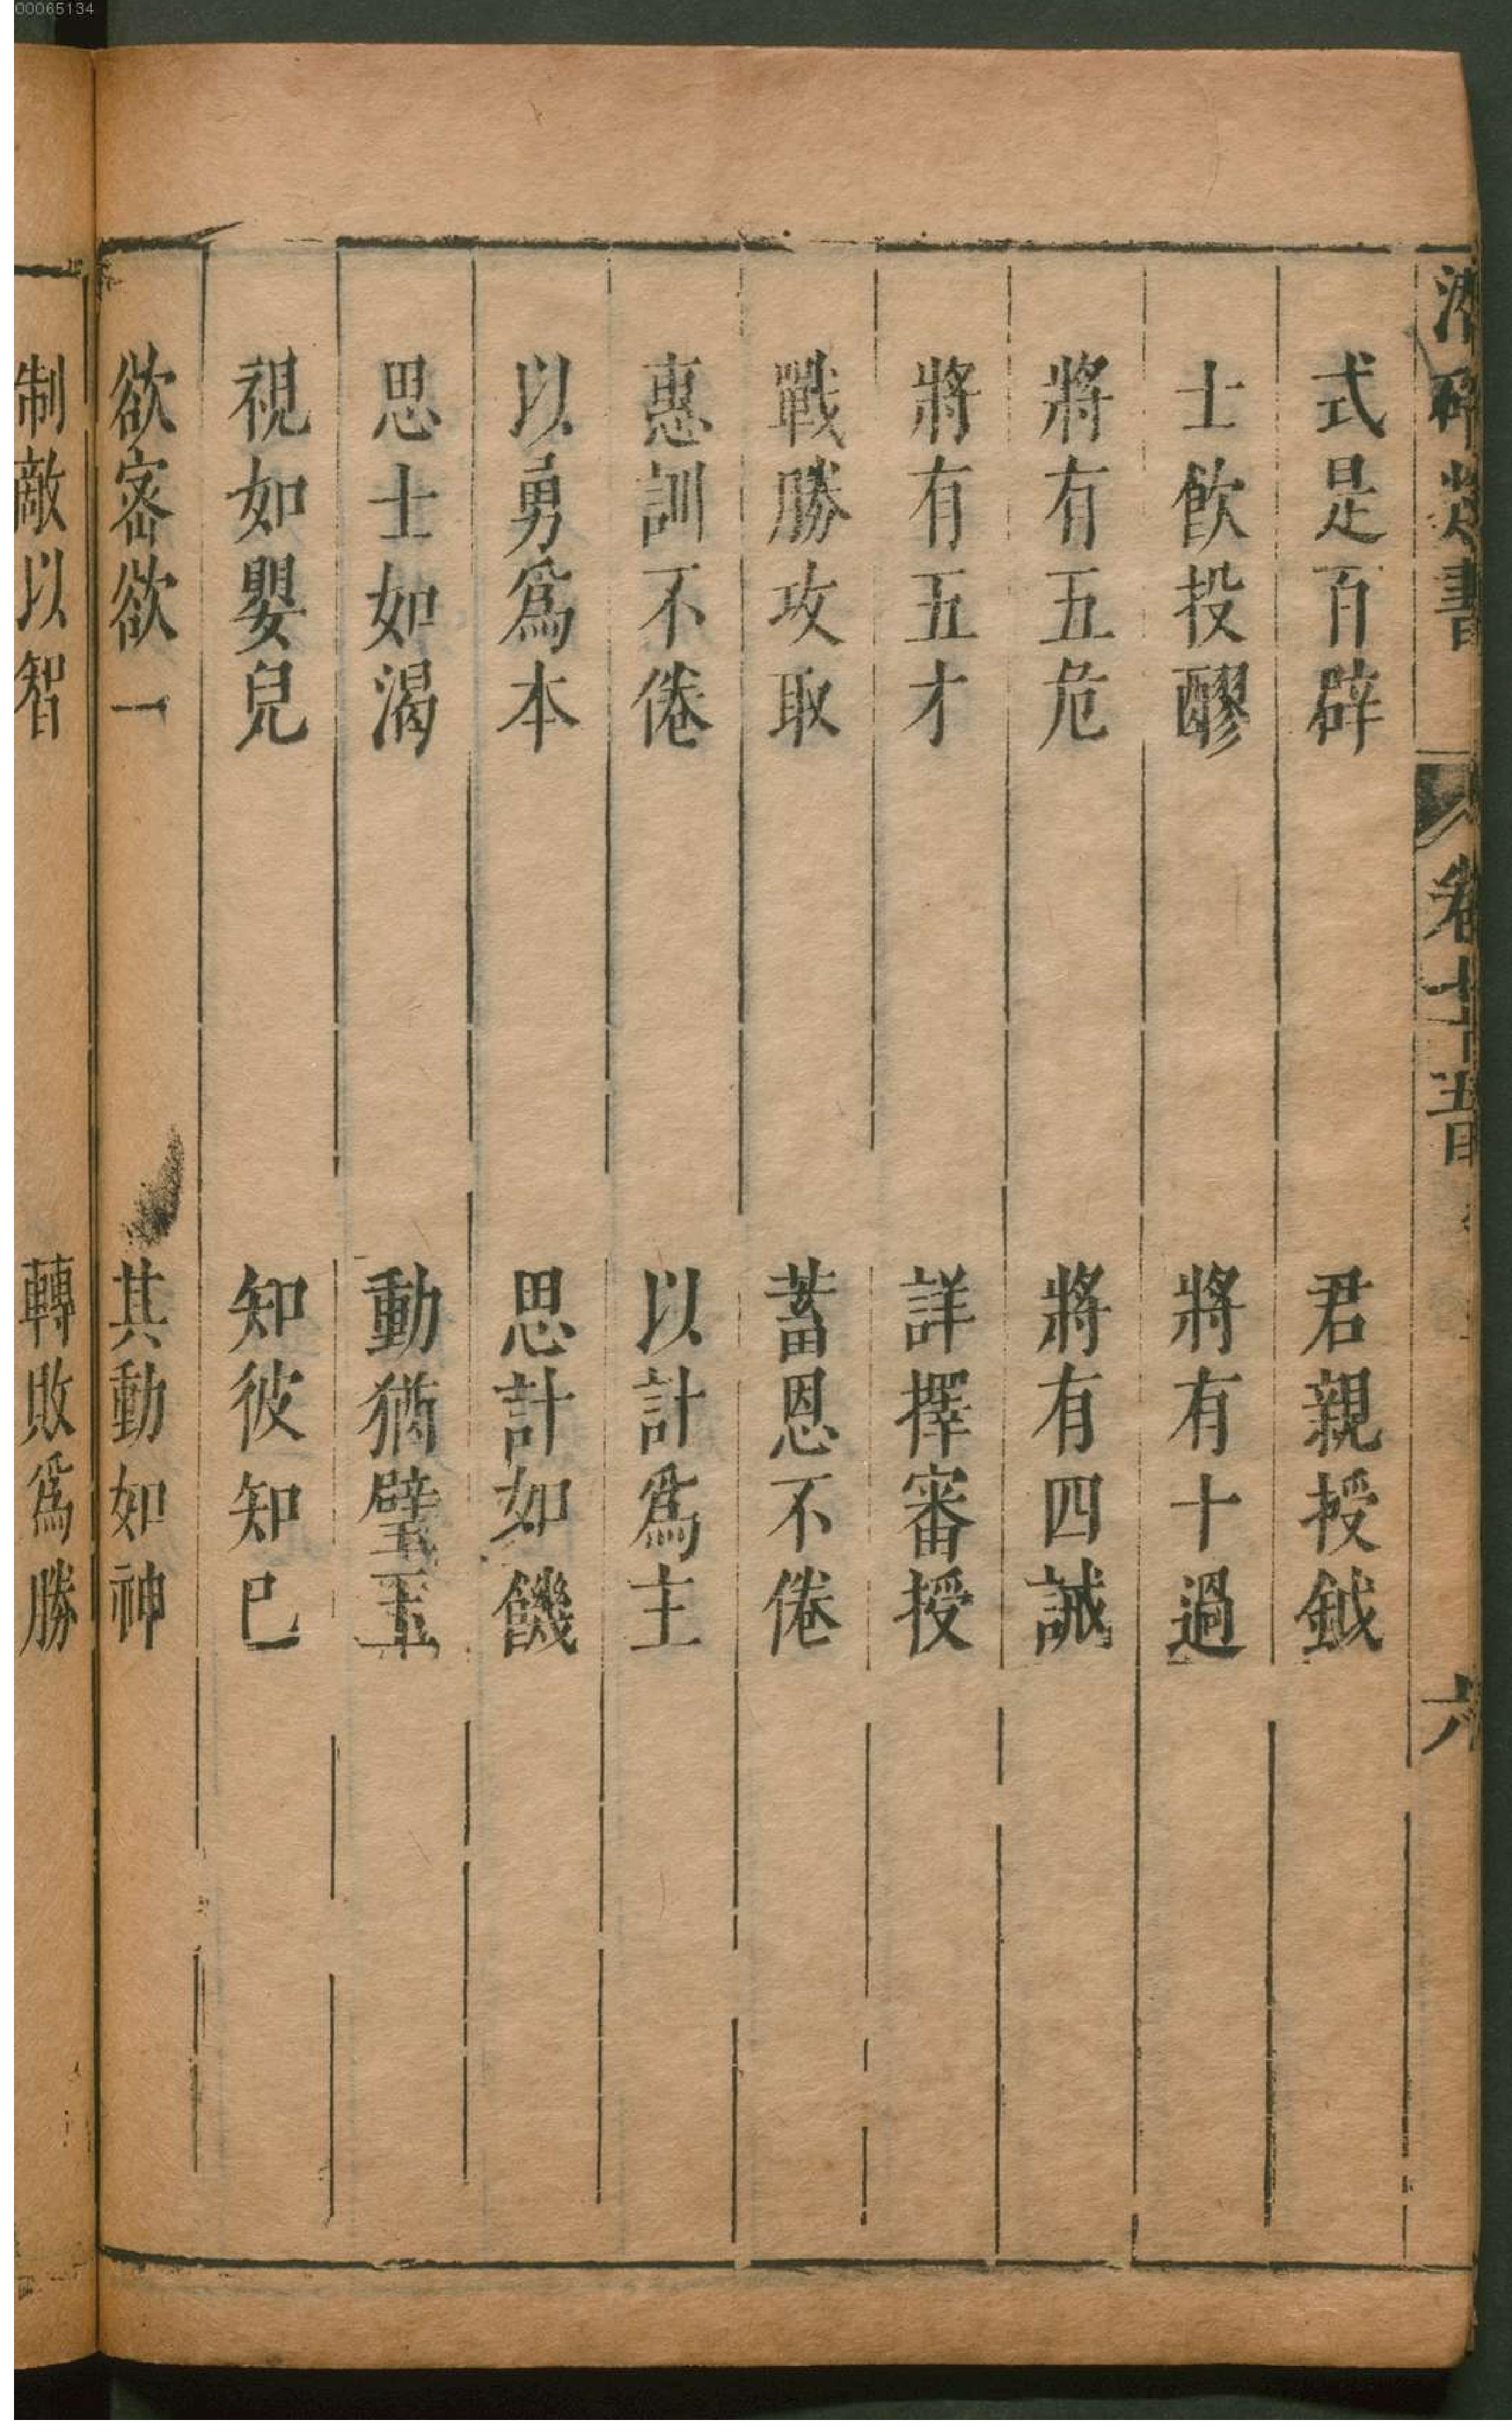 00065134
書
卷
六
式是百辟 君親授鉞
士飲投醪 將有十過
將有五危 將有四誡
將有五才 詳擇審授
戰勝攻取 蓄恩不倦
惠訓不倦 以計爲主
以勇爲本 思計如饑
思士如渴 動猶璧玉
視如嬰兒 知彼知己
欲密欲一 其動如神
制敵以智 轉敗爲勝